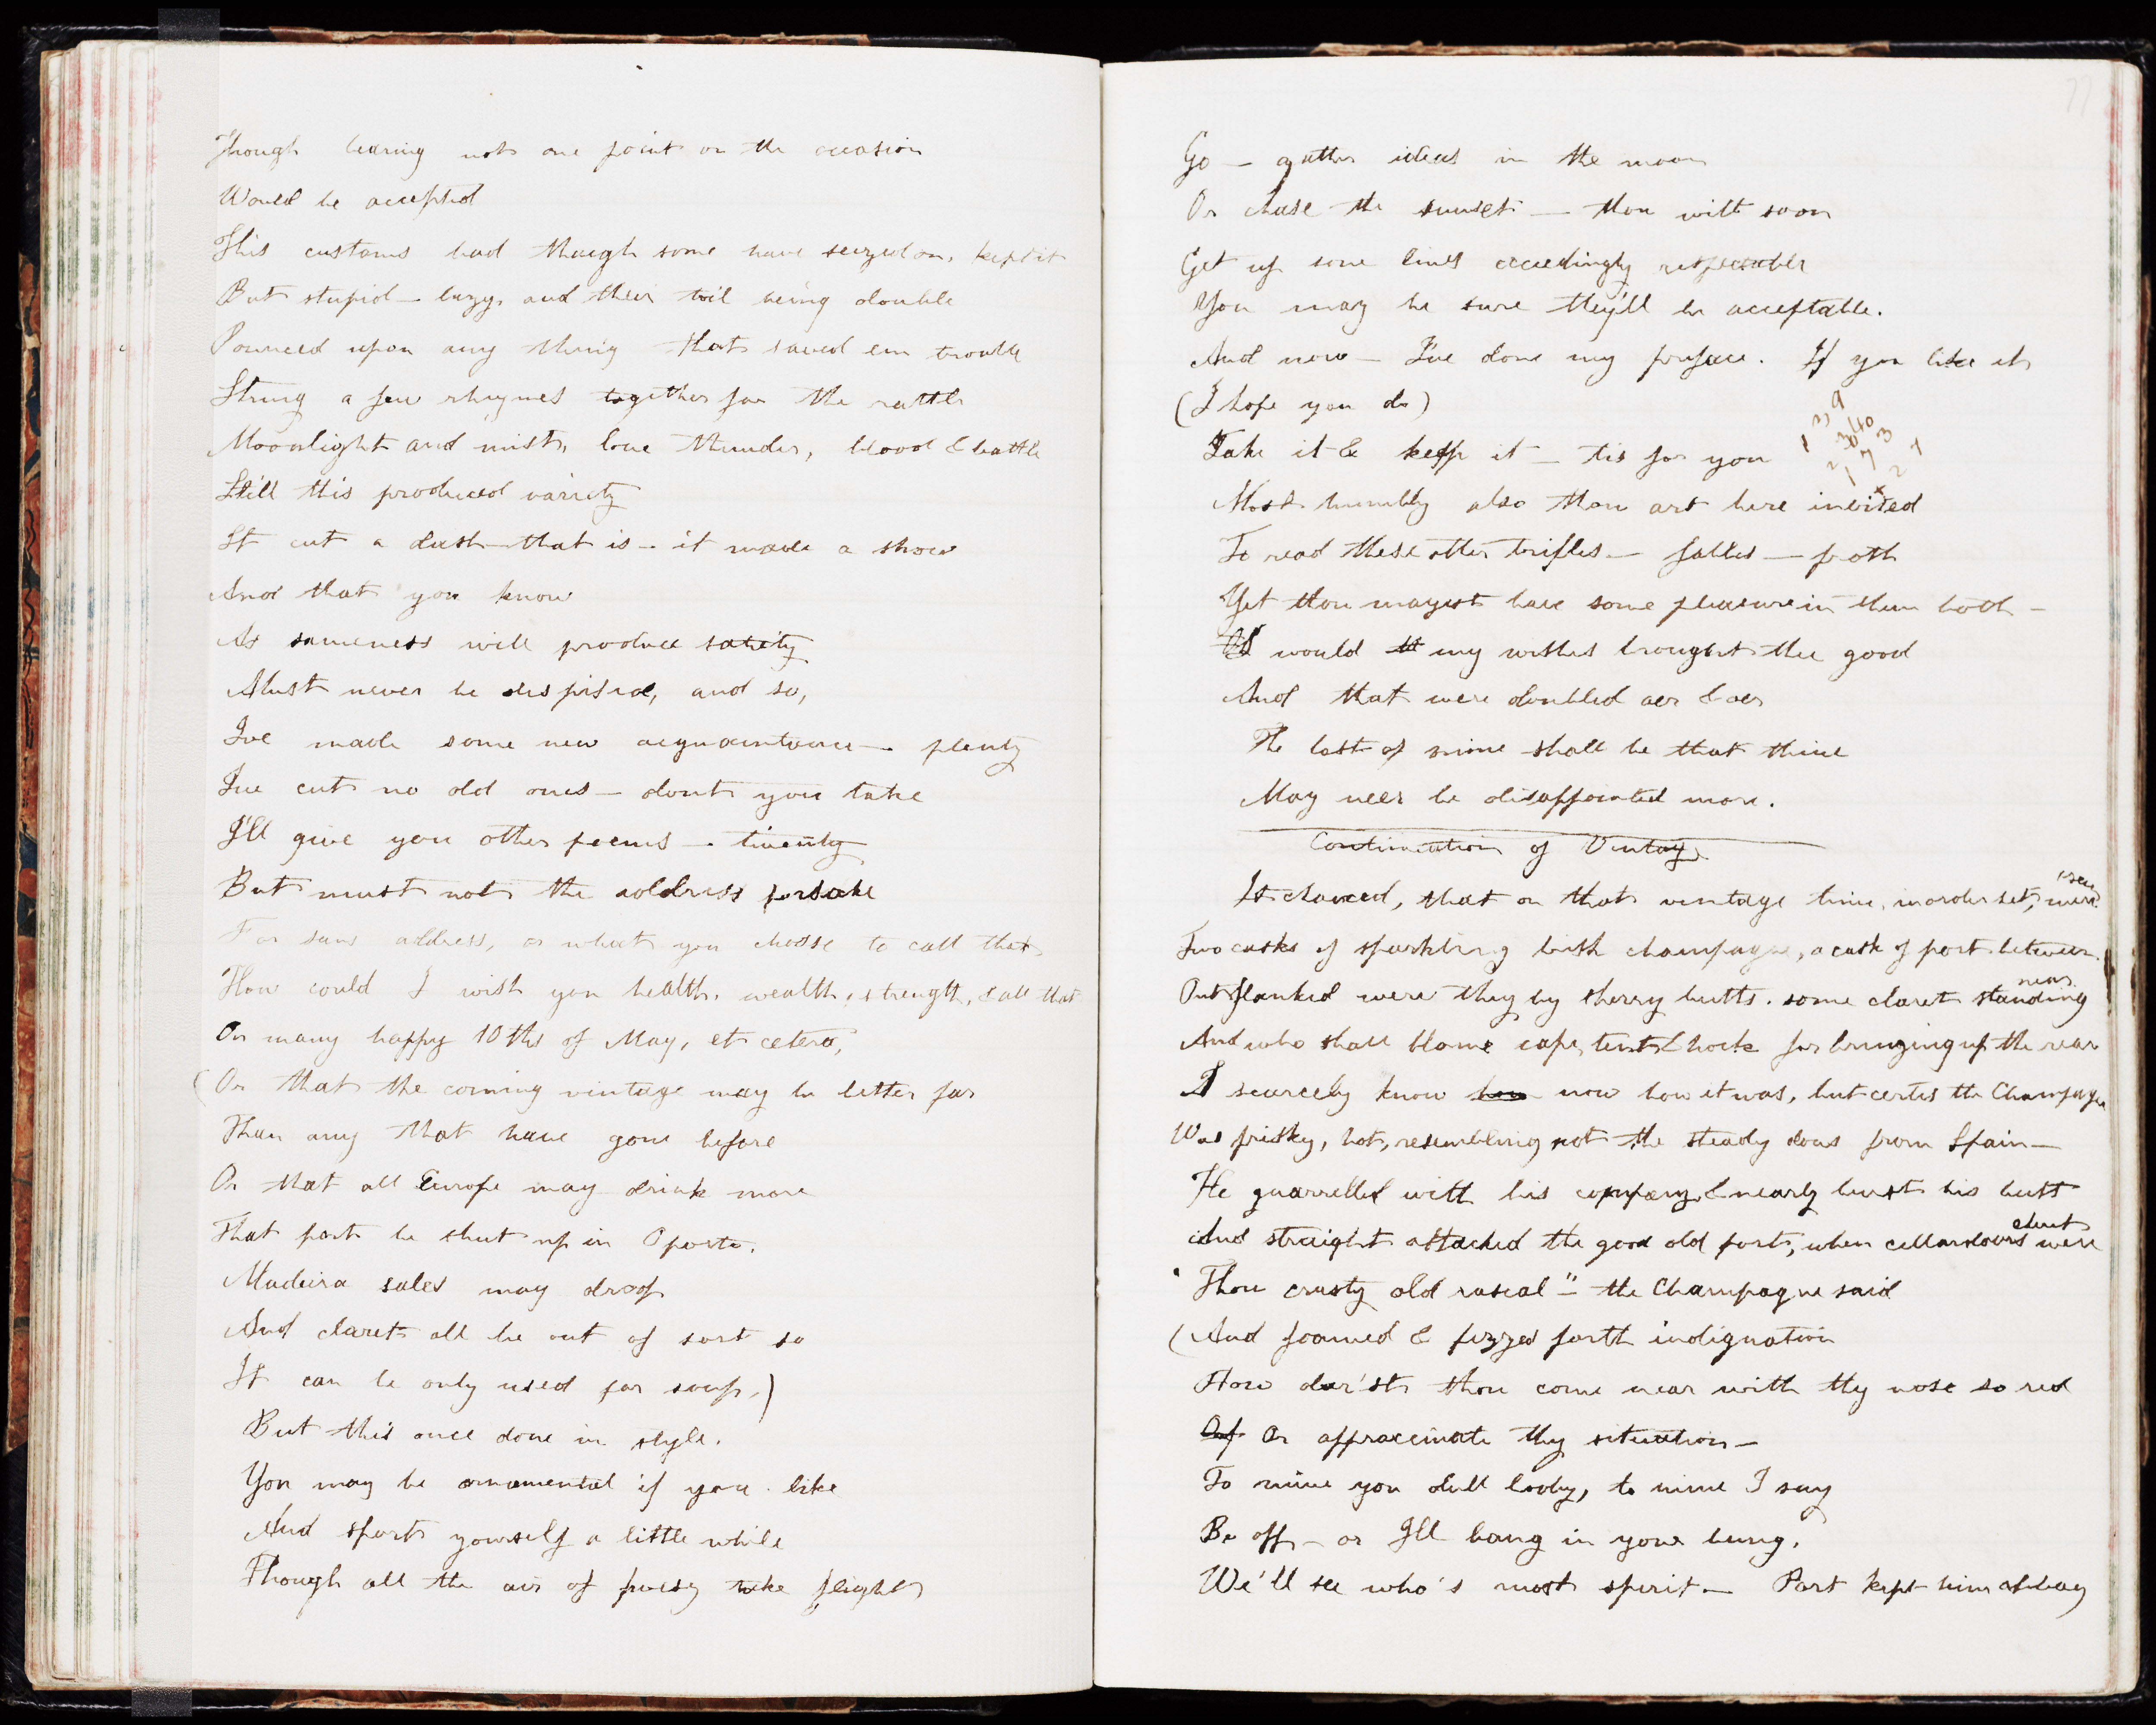 Though bearing not one point on the occasion
Would be accepted
This customs bad though some have seized on, kept it
But stupid – lazy, and their toil being double
Pounced upon any thing that saved em trouble
Strung a few rhymes together for the rattle
Moonlight and mist, love thunder, blood & battle
Still this produced variety
It cut a dash – that is – it made a show
And that you know
As sameness will produce satiety
Must never be despised, and so,
Ive made some new acquaintance – plenty
Ive cut no old ones – dont you take
I'll give you other poems – twenty
But must not the address forsake
For sans address, or what you choose to call that
How could I wish you health, wealth, strength, & all that
Or many happy 10ths of May, et cetera,
(Or that the coming vintage may be better far
Than any that have gone before
Or that all Europe may drink more
That port be shut up in Oporto,
Madeira sales may droop
And claret all be out of sort so
It can be only used for soup,)
But this once done in style,
You may be ornamental if you like
And sport yourself a little while
Though all the airs of poesy take flight
77
Go – gather ideas in the moon
Or chase the sunset – thou wilt soon
Get up some lines exceedingly respectable
You may be sure they'll be acceptable.
And now – I've done my preface. If you like it
(I hope you do)
Take it & keep it – tis for you
Most humbly also thou art here invited
To read these other trifles – fables – froth
Yet thou mayest have some pleasure in them both –
Would my wishes brought thee good
And that were doubled oer & oer
The last of mine shall be that thine
May neer be disappointed more.
Continuation of Vintage
It chanced, that on that vintage time, in order set, were seen
Two casks of sparkling brisk champagne, a cask of port between.
Outflanked were they by sherry butts, some claret standing near
And who shall blame cape, tent & hock for bringing up the rear
I scarcely know how now how it was, but certes the Champagne
Was frisky, hot, resembling not the steady dons from Spain –
He quarrelled with his company, & nearly burst his butt
And straight attacked the good old port, when cellardoors were shut
"Thou crusty old rascal" – the Champagne said
(And foamed & fizzed forth indignation
How dar'st thou come near with thy nose so red
Or approximate thy situation –
To mine you dull looby, to mine I say
Be off – or Ill bang in your bung,
We'll see who's most spirit – Port kept him at bay